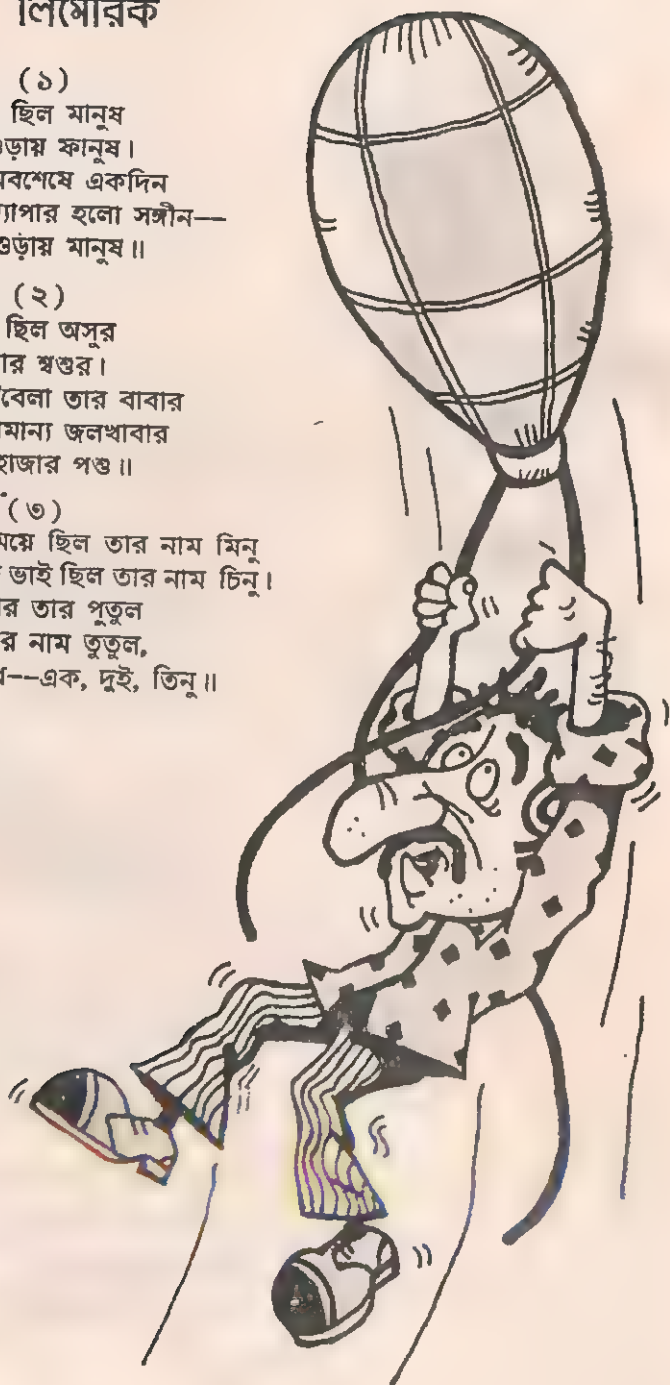 লিমেরিক
(১)
ছিল মানুষ
ওড়ায় ফানুষ।
অবশেষে একদিন
ব্যাপার হলো সঙ্গীন--
ওড়ায় মানুষ॥
(২)
ছিল অসুর
শ্বশুর।
তার বাবার
সামান্য জলখাবার
হাজার পশু॥
(৩)
মেয়ে ছিল তার নাম মিনু
ভাই ছিল তার নাম চিনু।
তার পুতুল
নাম তুতুল,
--এক, দুই, তিনু॥